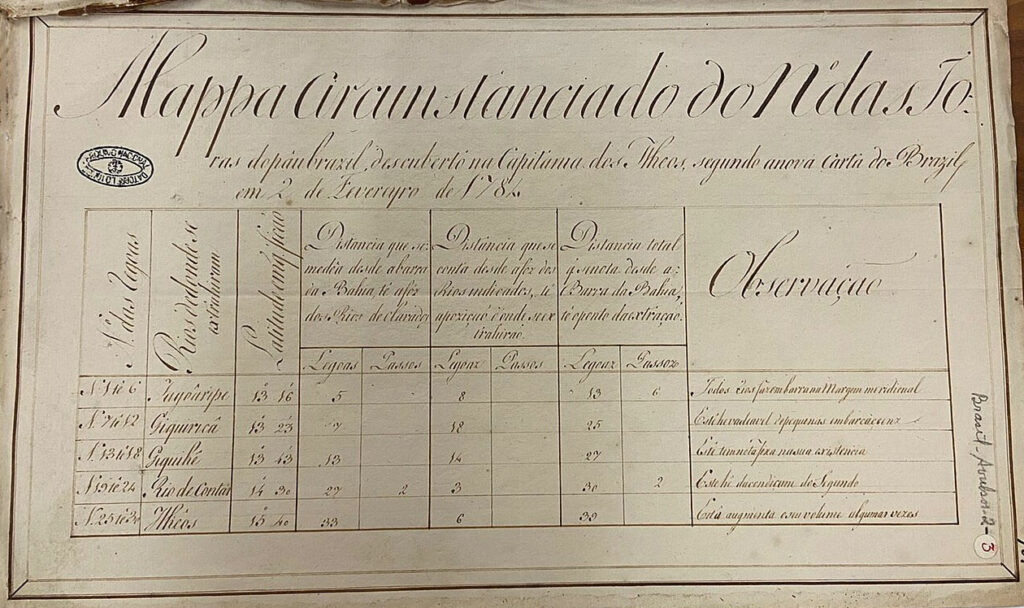 Mappa Circunstanciado do Nº das To-
ras do páu brazil, descuberto na Capitania dos Ilheos, segundo a nova Carta do Brazil
em 2 de Fevereyro de 1784
Nº das Toras
Rios de donde se
extrahiram
Latitude em q' ficão
Distancia que se
medêa desde a barra
da Bahia, té a fóz
dos Rios declarados
Distáncia que se
conta desde a fóz dos
Rios indicados, té
apozição donde se ex
trahirão
Distancia total
q' se nota desde a
Barra da Bahia,
té o ponto da extração
Observação
Legoas Passos Legoaz Passos Legoaz Passoz
Nº 1 té 6 Jagoaripe 13 16 5 8 13 6 Todos Rios fazem barra na Margem meridional
Nº 7 té 12 Giquiriçá 13 23 7 18 25 Este he vadiavel de pequenas embarcaçoenz
Nº 13 té 18 Giquihé 13 43 13 14 27 Este tem na sua existencia
Nº 19 té 24 Rio de Contas 14 30 27 2 3 30 2 Este hé da do Segundo
Nº 25 té 30 Ilhéos 15 40 33 6 39 Este augmenta o seu volume algumas vezes
Brasil-Avulsos-2-3